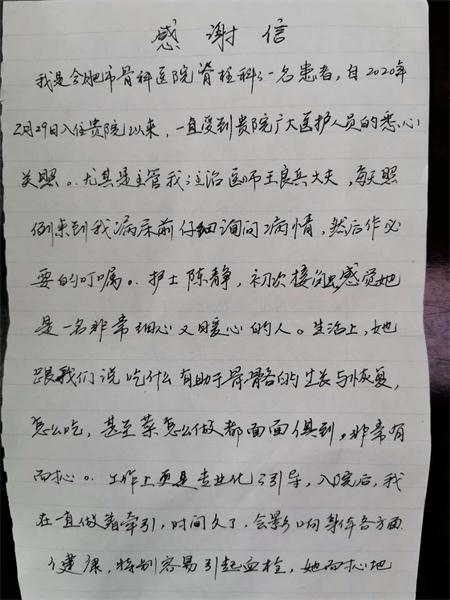 感谢信
我是合肥市骨科医院脊柱科一名患者，自2020年
2月29日入住贵院以来，一直受到贵院广大医护人员的悉心
关照。尤其是主管我主治医师王良兵大夫，每天照
例来到我病床前仔细询问病情，然后作必
要的叮嘱。护士陈静，初次接触感觉她
是一名非常细心又暖心的人。生活上，她
跟我们说吃什么有助于骨骼的生长与恢复，
怎么吃，甚至菜怎么做都面面俱到，非常有
耐心。工作上更是专业化引导，入院后，我
在一直做着牵引，时间久了，会影响身体各方面
健康，特别容易引起血栓，她耐心地